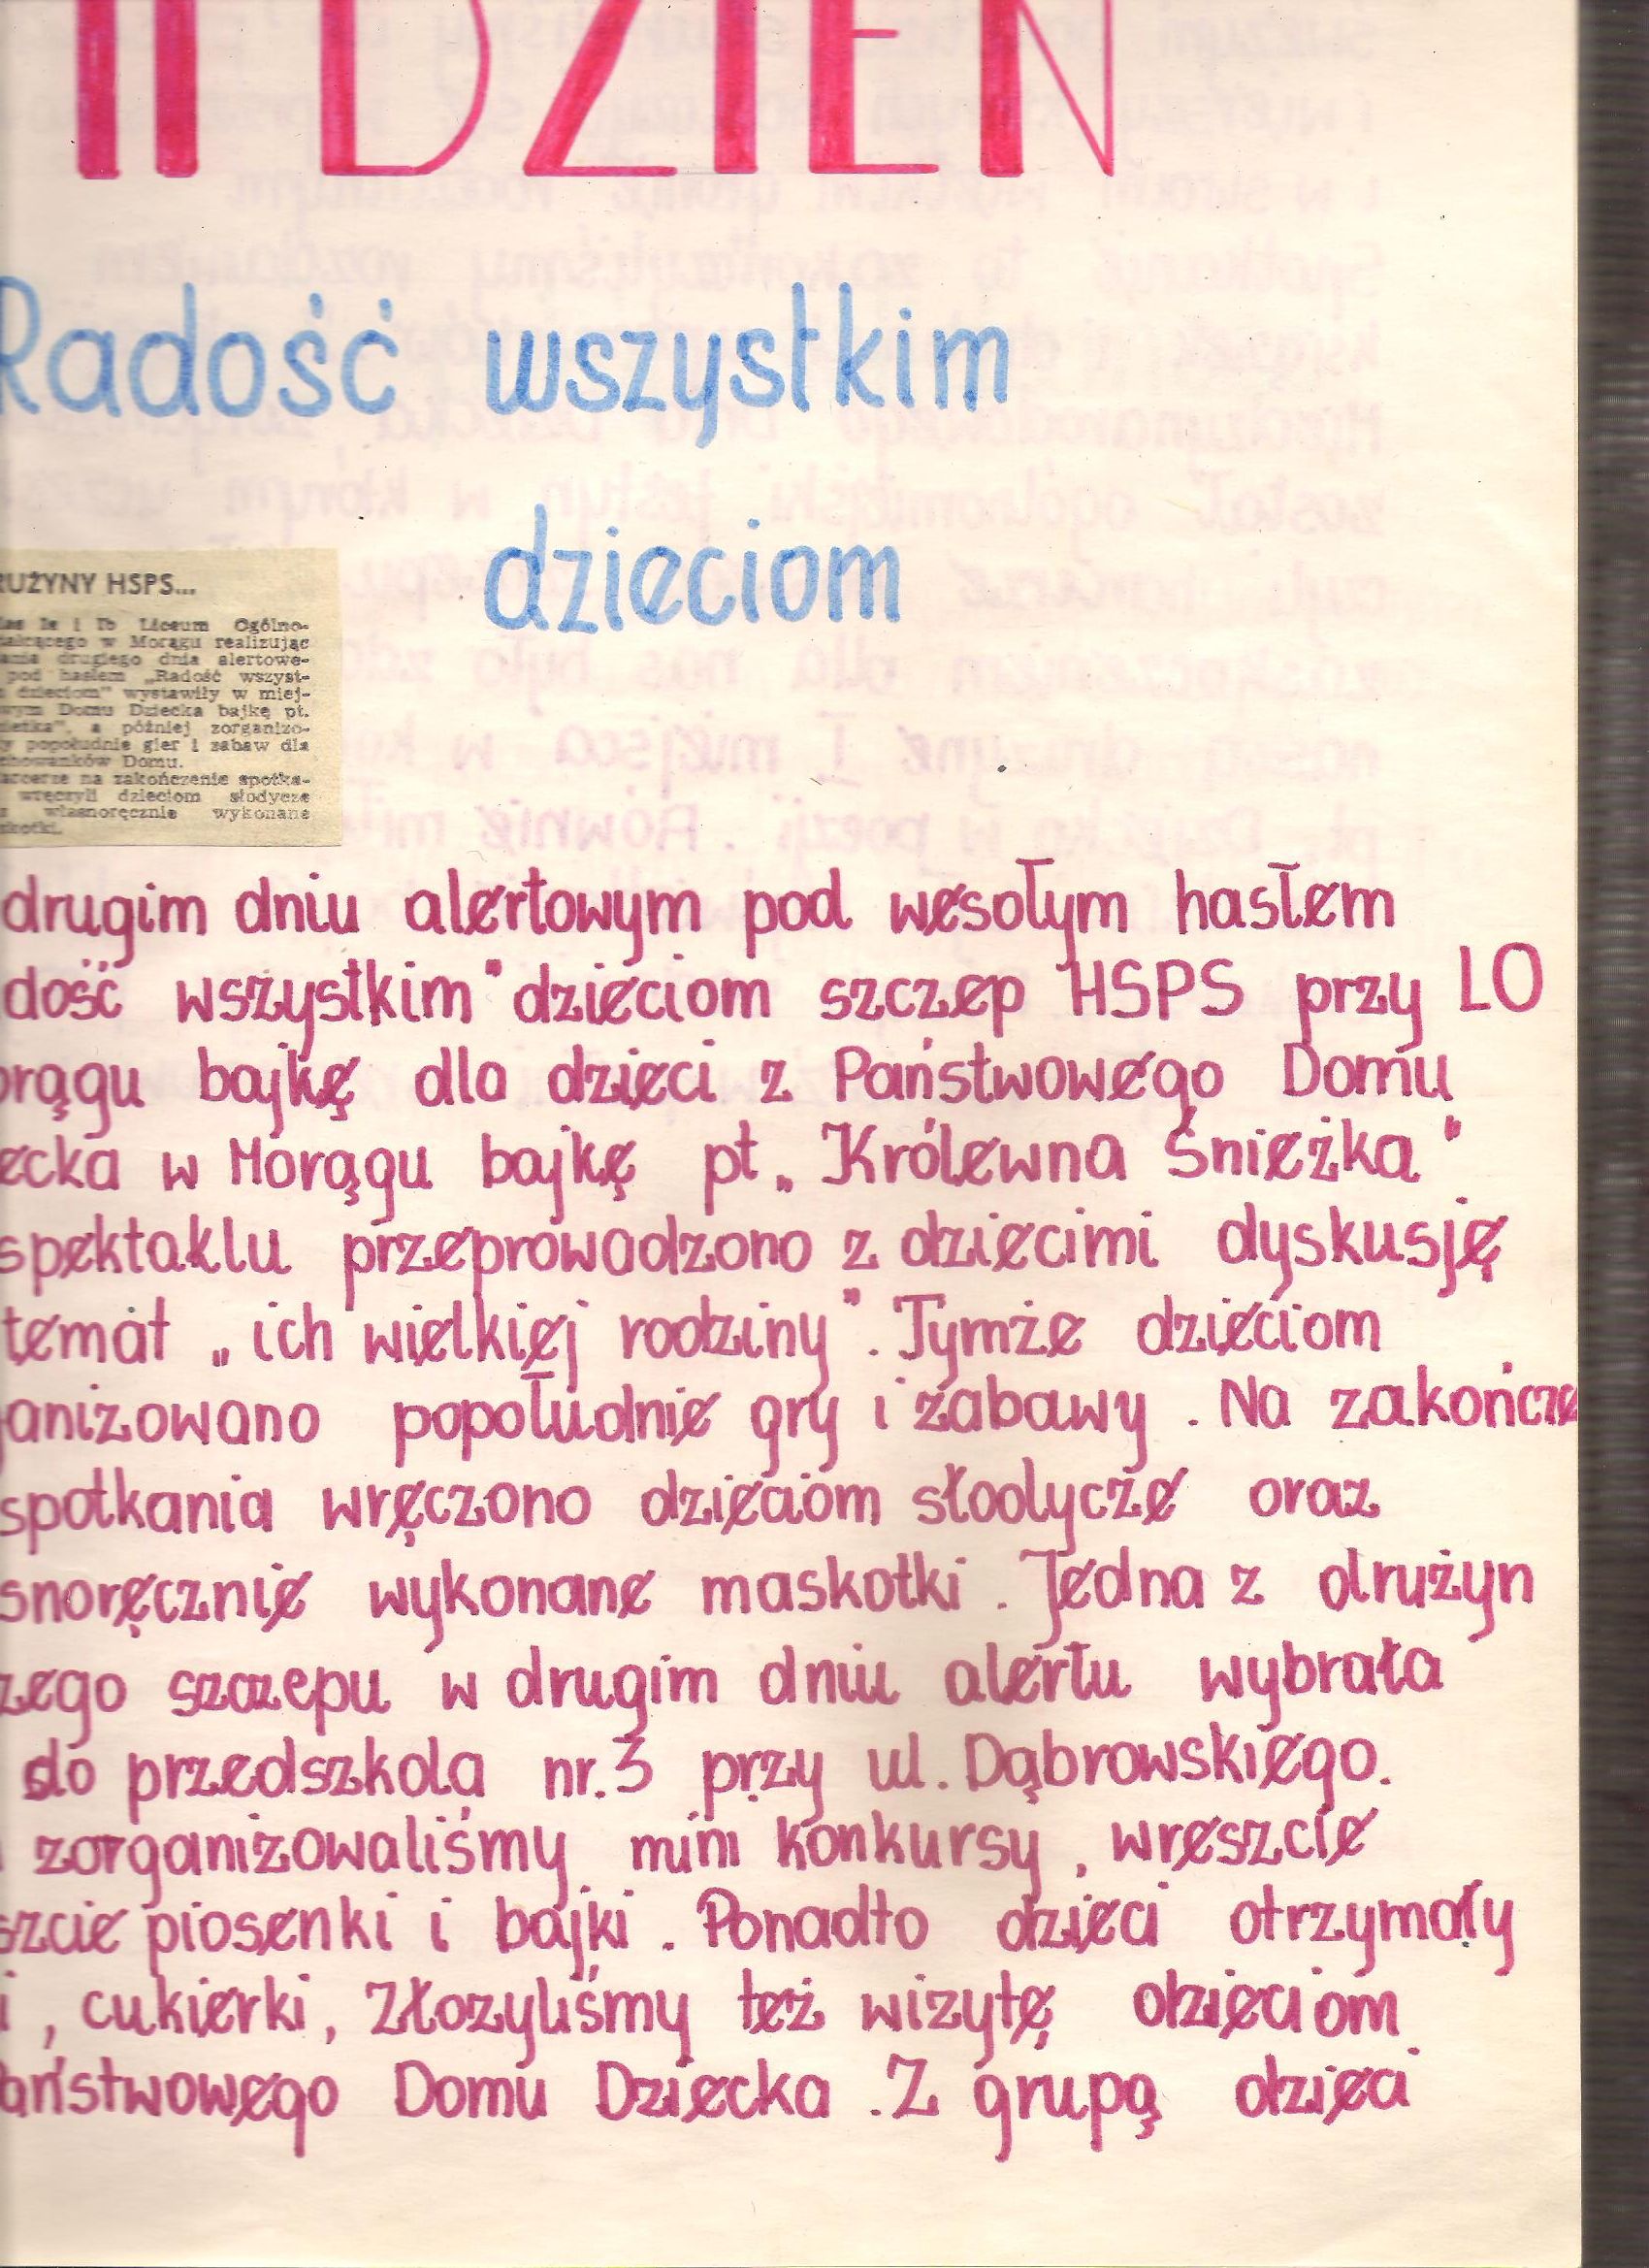 II DZIEŃ
Radość wszystkim
dzieciom
RUŻYNY HSPS...
Ie i Ib Liceum Ogólno-
cego w Morągu realizując
drugiego dnia alertowe-
pod hasłem „Radość wszyst-
dzieciom" wystawiły w miej-
wym Domu Dziecka bajkę pt.
a później zorganizo-
y popołudnie gier i zabaw dla
chowanków Domu.
arcerze na zakończenie spotka-
wręczyli dzieciom słodycze
z własnoręcznie wykonane
skotki.
drugim dniu alertowym pod wesołym hasłem
dość wszystkim" dzieciom szczep HSPS przy LO
orągu bajkę dla dzieci z Państwowego Domu
ecka w Morągu bajkę pt. „Królewna Śnieżka"
spektaklu przeprowadzono z dziećimi dyskusję
temat „ich wielkiej rodziny". Tymże dzieciom
anizowano popołudnie gry i zabawy. Na zakończe
spotkania wręczono dzieciom słodycze oraz
snoręcznie wykonane maskotki. Jedna z drużyn
zego szczepu w drugim dniu alertu wybrała
do przedszkola nr. 3 przy ul. Dąbrowskiego.
zorganizowaliśmy mini konkursy, wreszcie
szcie piosenki i bajki. Ponadto dzieci otrzymały
i, cukierki, Złożyliśmy też wizytę dzieciom
aństwowego Domu Dziecka. Z grupą dzieci